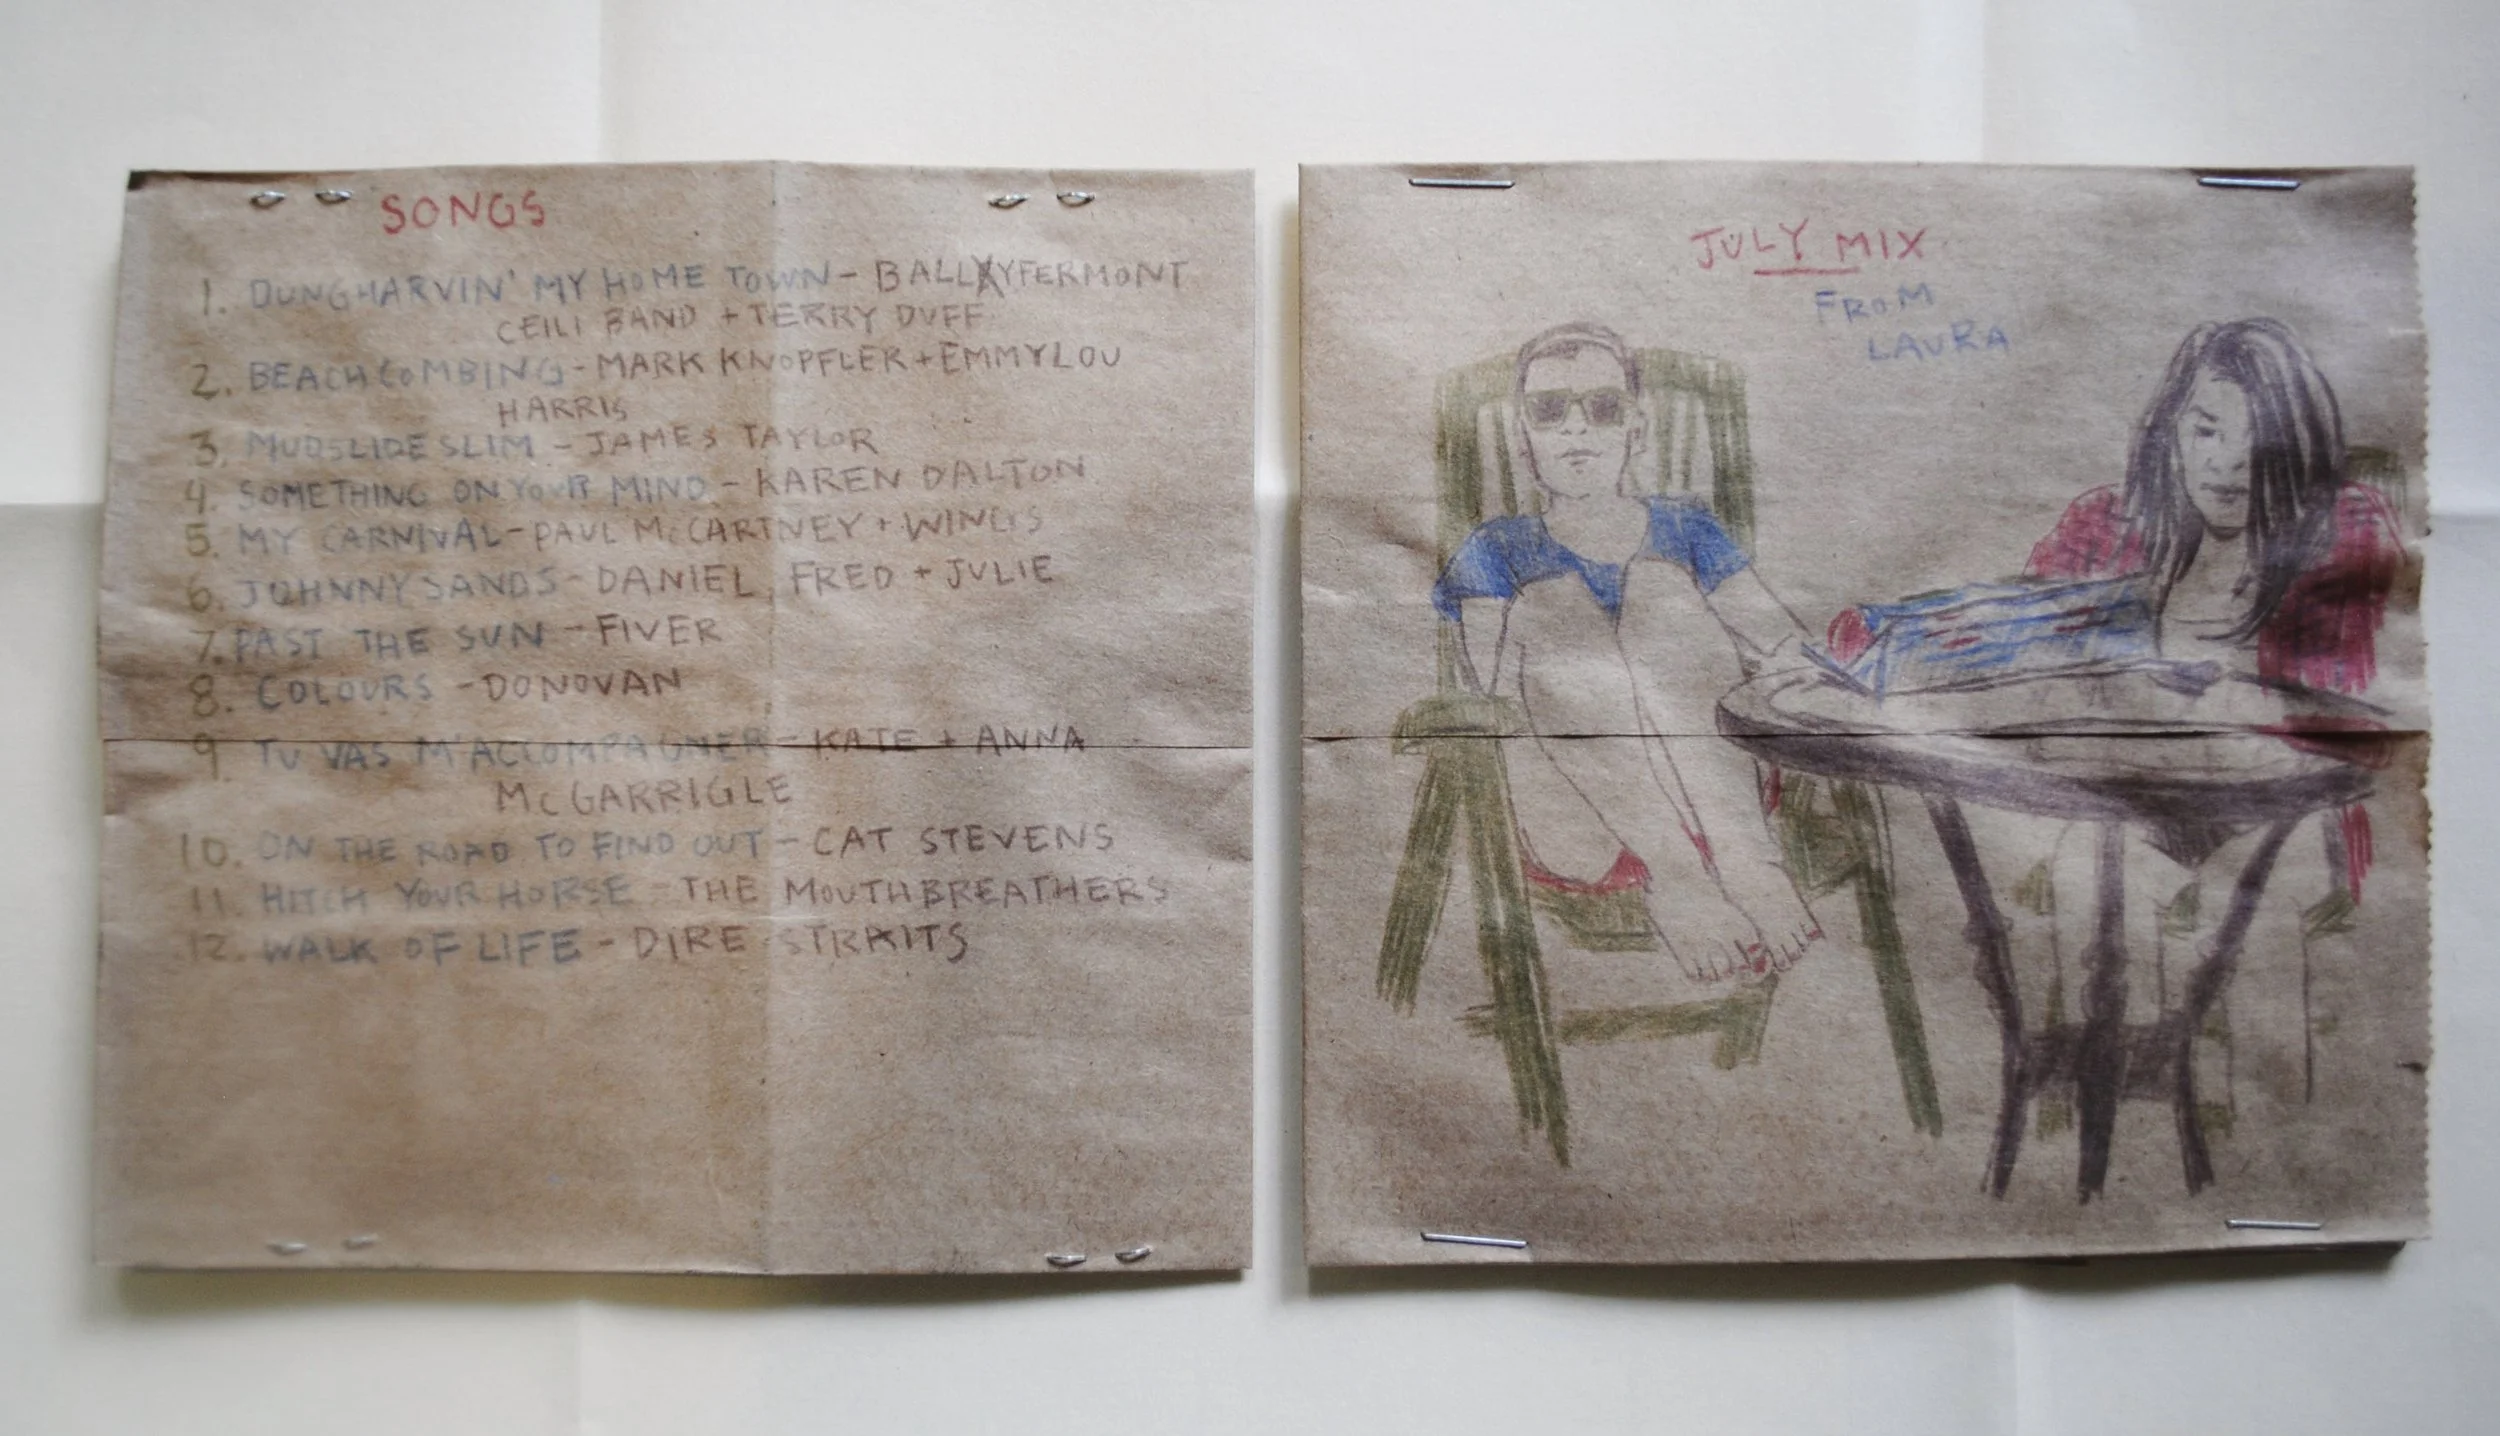 SONGS
1. DUNGHARVIN' MY HOME TOWN - BALLYFERMONT
CEILI BAND + TERRY DUFF
2. BEACHCOMBING - MARK KNOPFLER + EMMYLOU
HARRIS
3. MUDSLIDE SLIM - JAMES TAYLOR
4. SOMETHING ON YOUR MIND - KAREN DALTON
5. MY CARNIVAL - PAUL McCARTNEY + WINGS
6. JOHNNY SANDS - DANIEL, FRED + JULIE
7. PAST THE SUN - FIVER
8. COLOURS - DONOVAN
9. TU VAS M'ACCOMPAGNER - KATE + ANNA
McGARRIGLE
10. ON THE ROAD TO FIND OUT - CAT STEVENS
11. HITCH YOUR HORSE - THE MOUTHBREATHERS
12. WALK OF LIFE - DIRE STRAITS
JULY MIX
FROM
LAURA